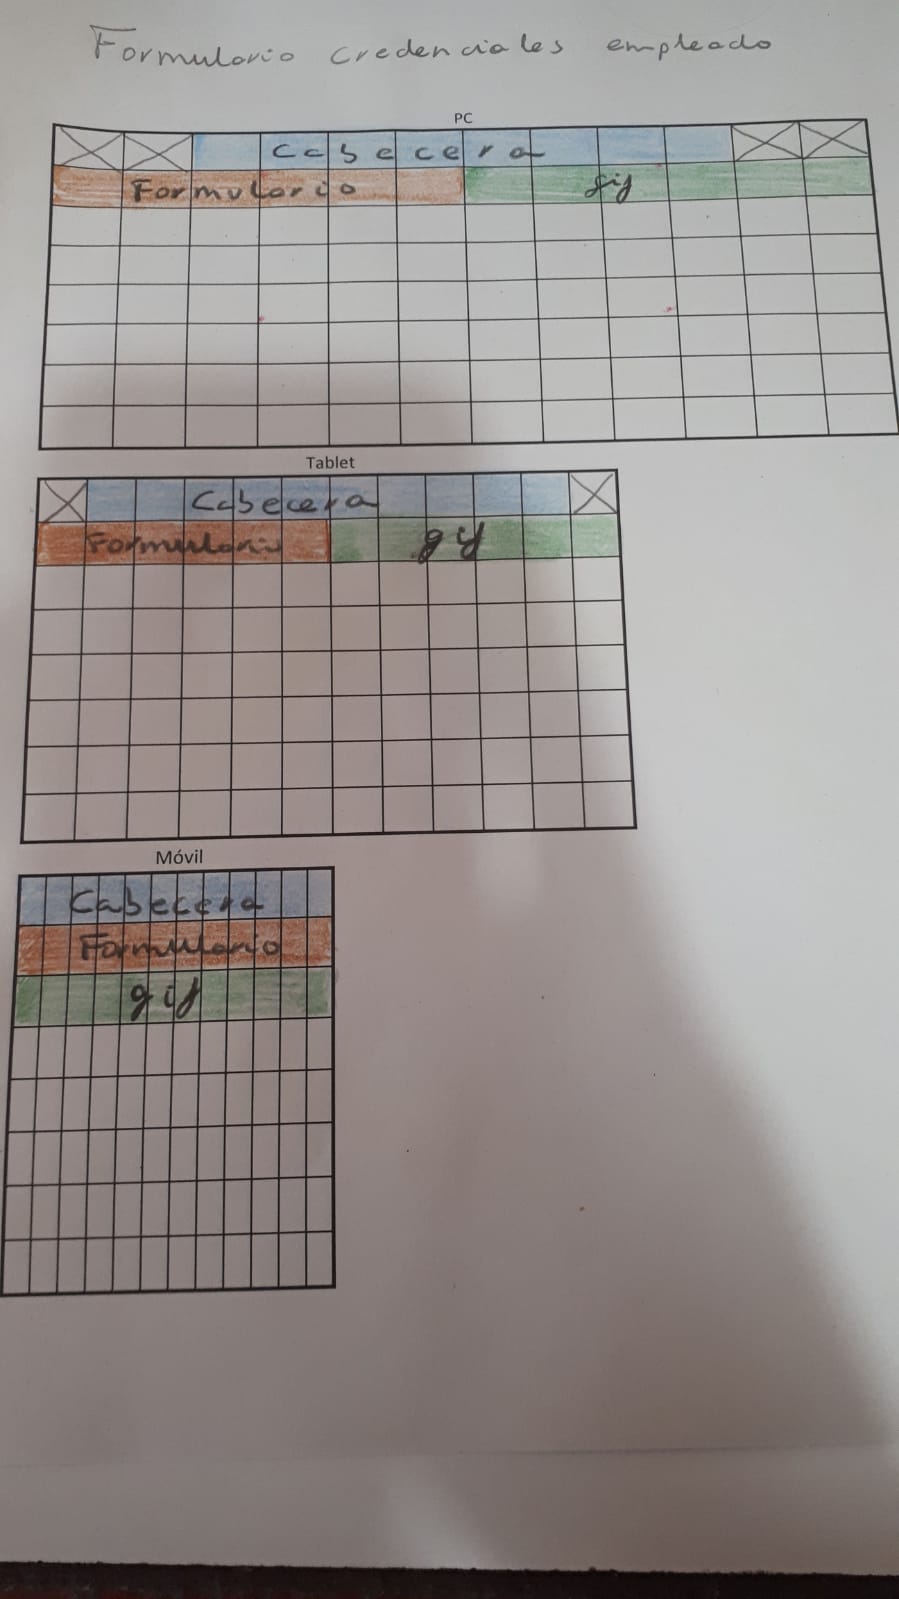 Formulario credenciales empleado
PC
Cabecera
Formulario gif
Tablet
Cabecera
Formulario gif
Móvil
Cabecera
Formulario
gif